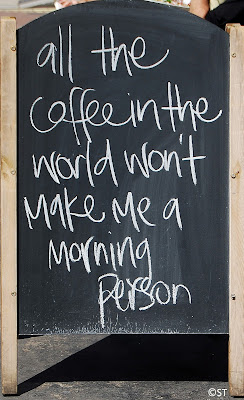 all the
coffee in the
world won't
Make Me a
Morning
person
©ST